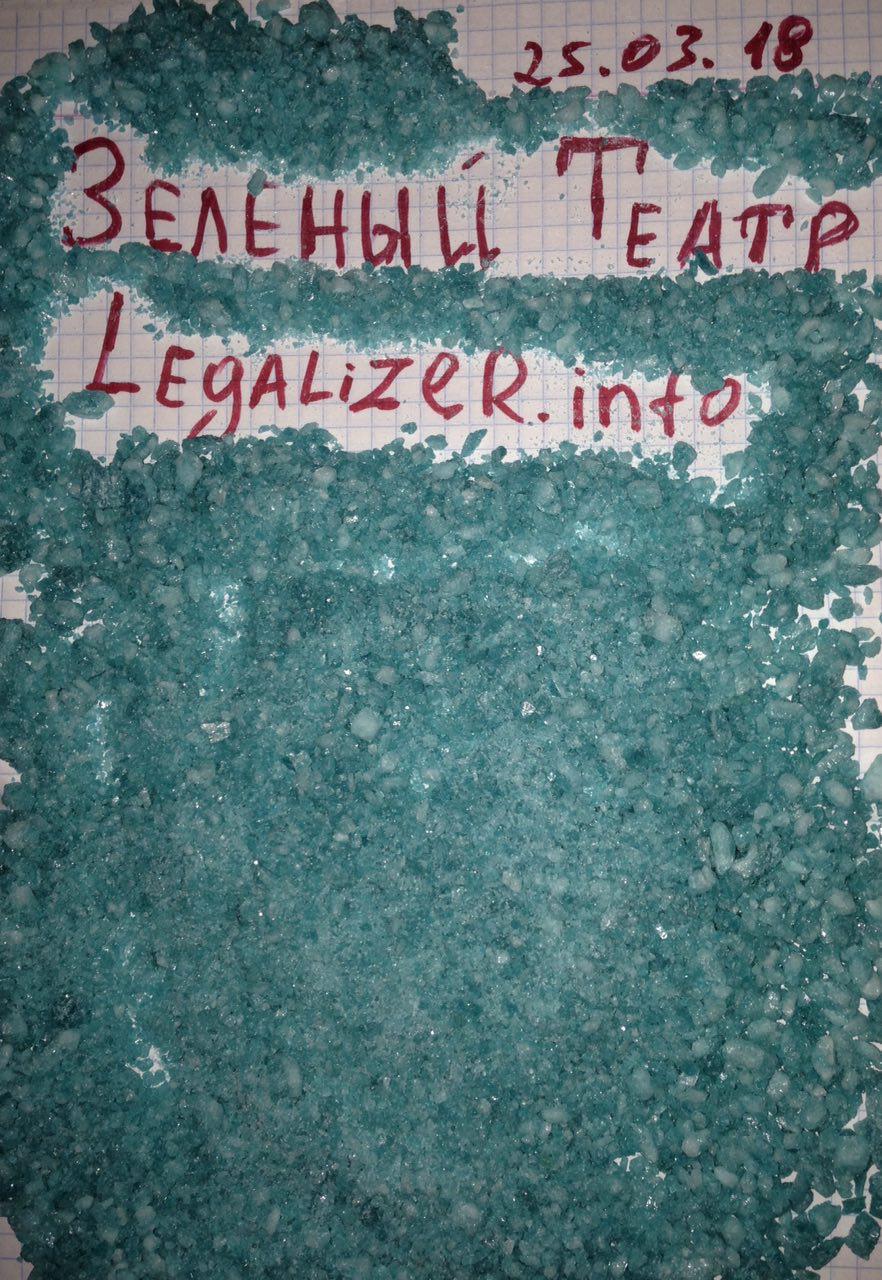 25.03.18
ЗЕЛЕНЫЙ ТЕАТР
LEgALiZeR.info